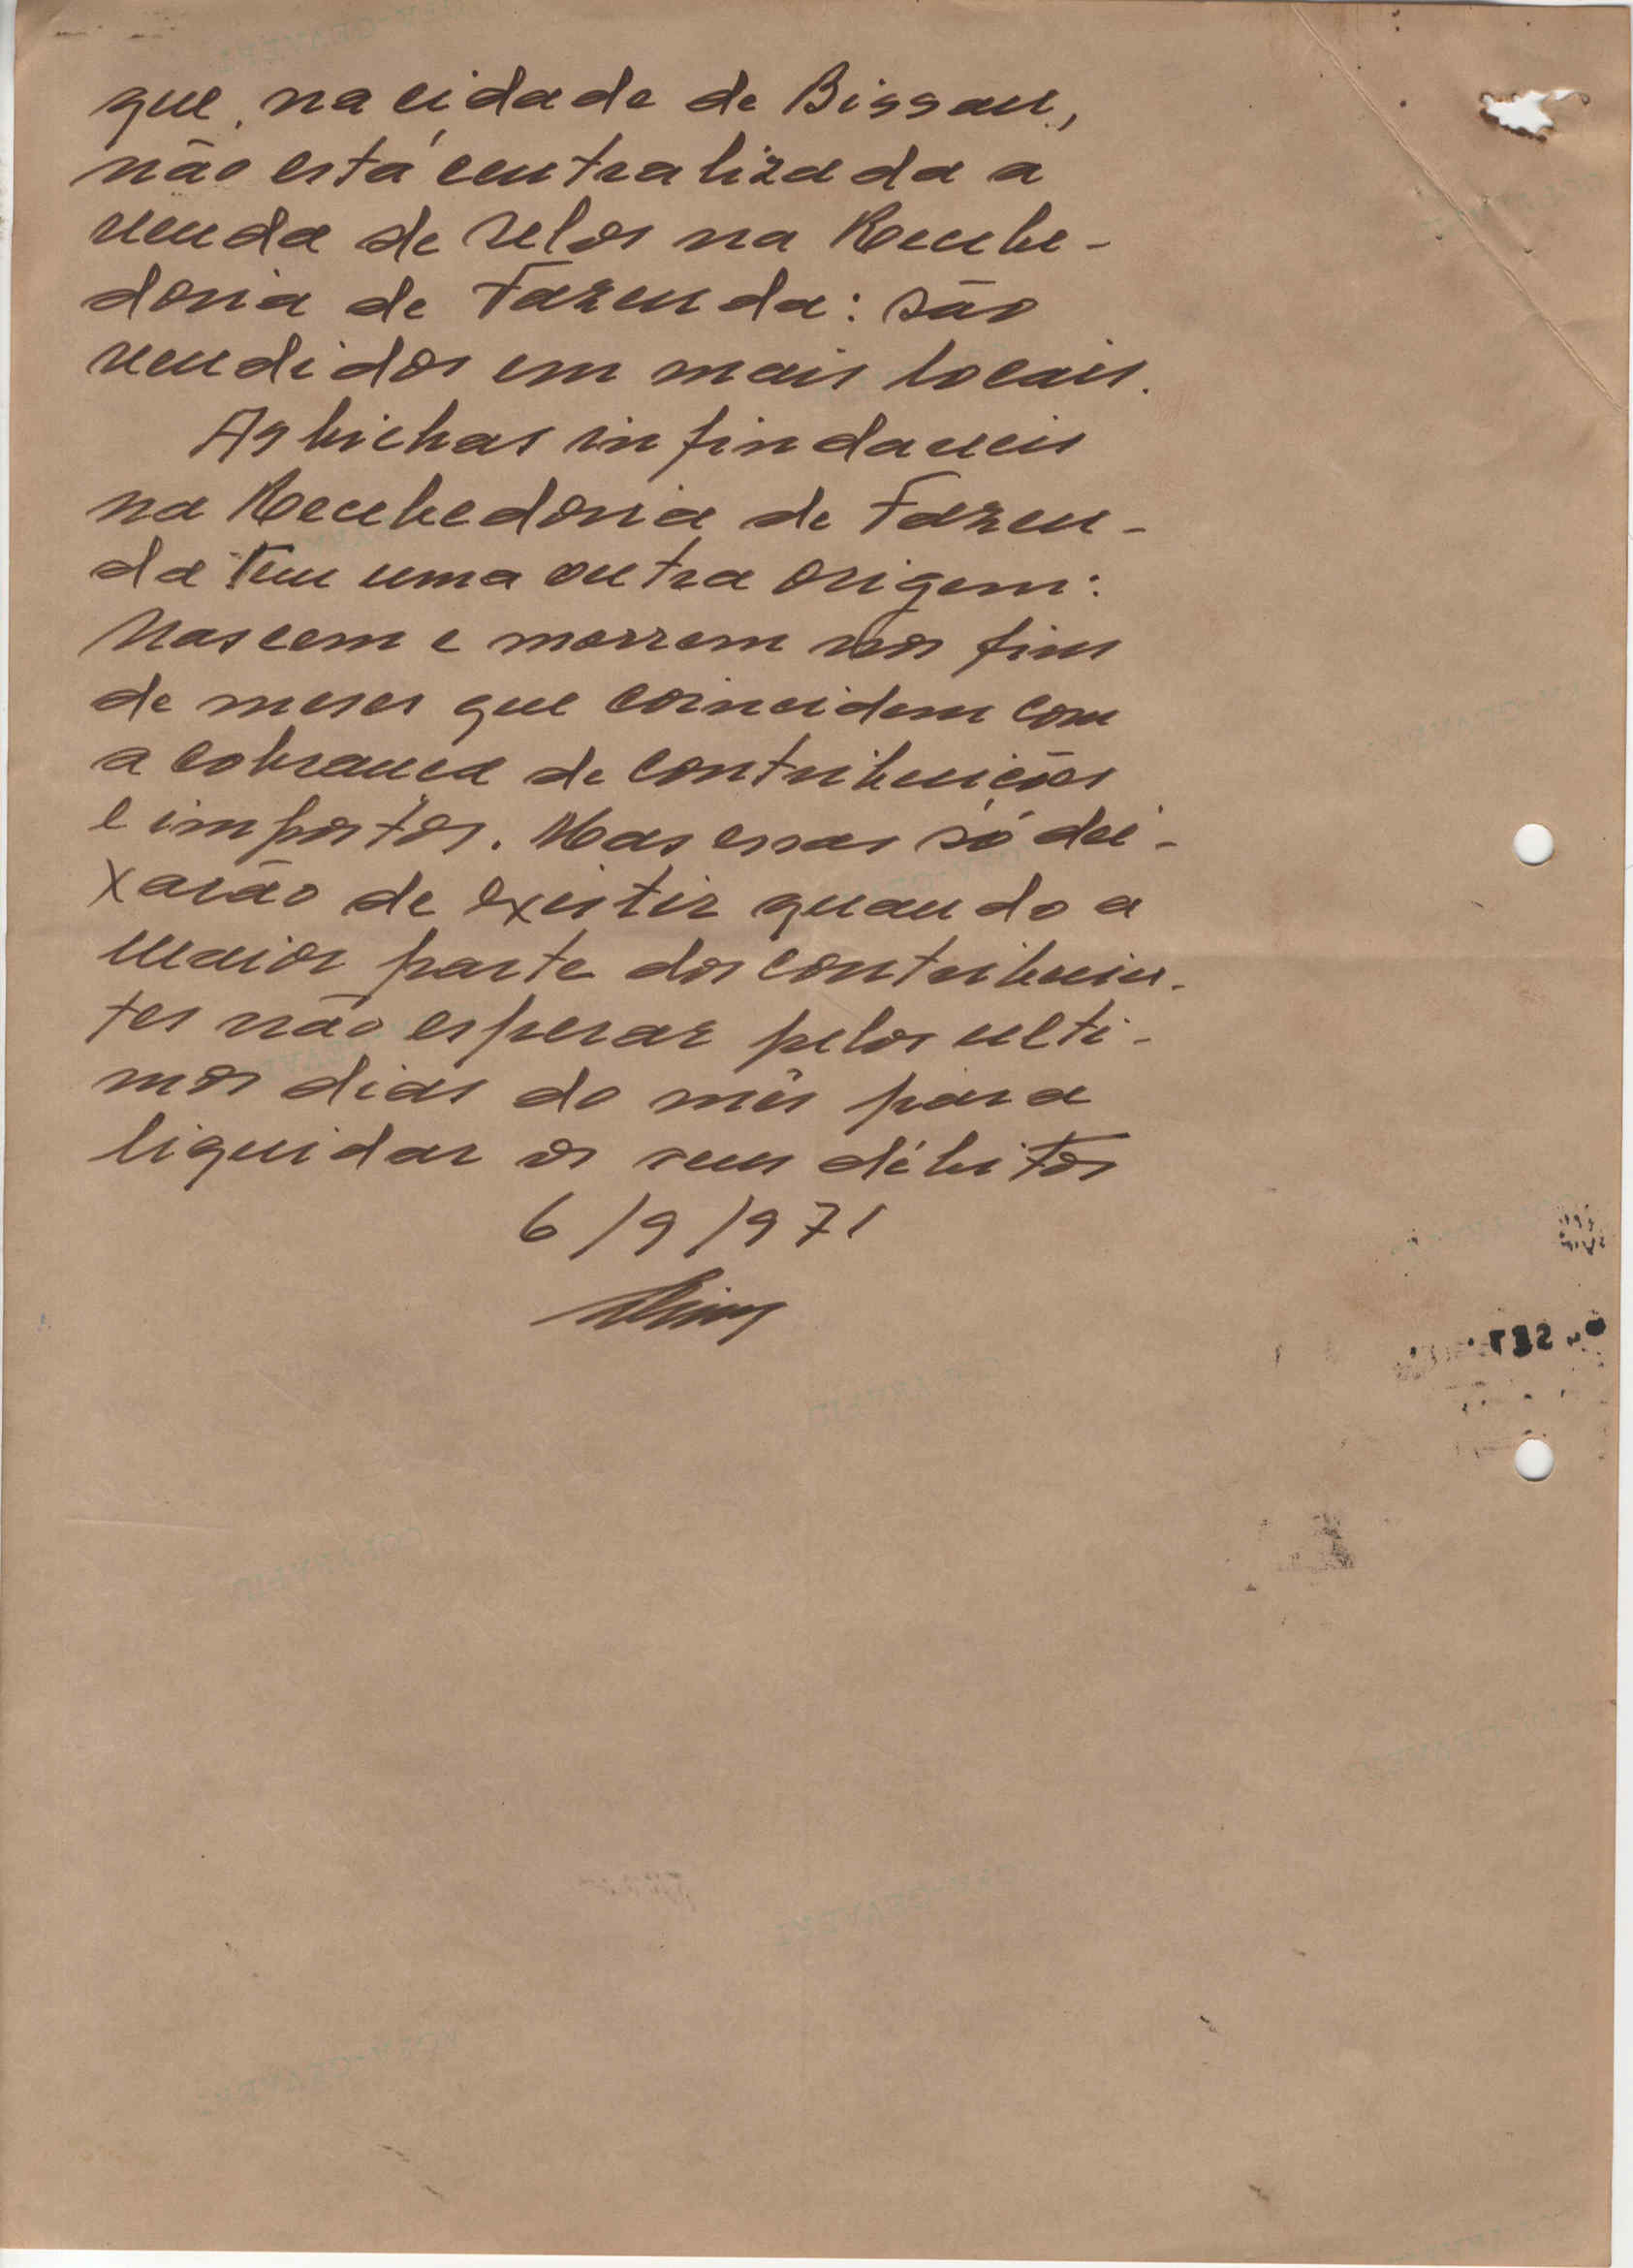 que, na cidade de Bissau,
não está centralizada a
venda de selos na Recebe-
doria de Fazenda: são
vendidos em mais locais.
As bichas infindaveis
na Recebedoria de Fazen-
da tem uma outra origem:
Nascem e morrem nos fins
de meses que coincidem com
a cobrança de contribuições
e impostos. Mas essas só dei-
xarão de existir quando a
maior parte dos contribuin-
tes não esperar pelos ulti-
mos dias do mês para
liquidar os seus débitos
6/9/971